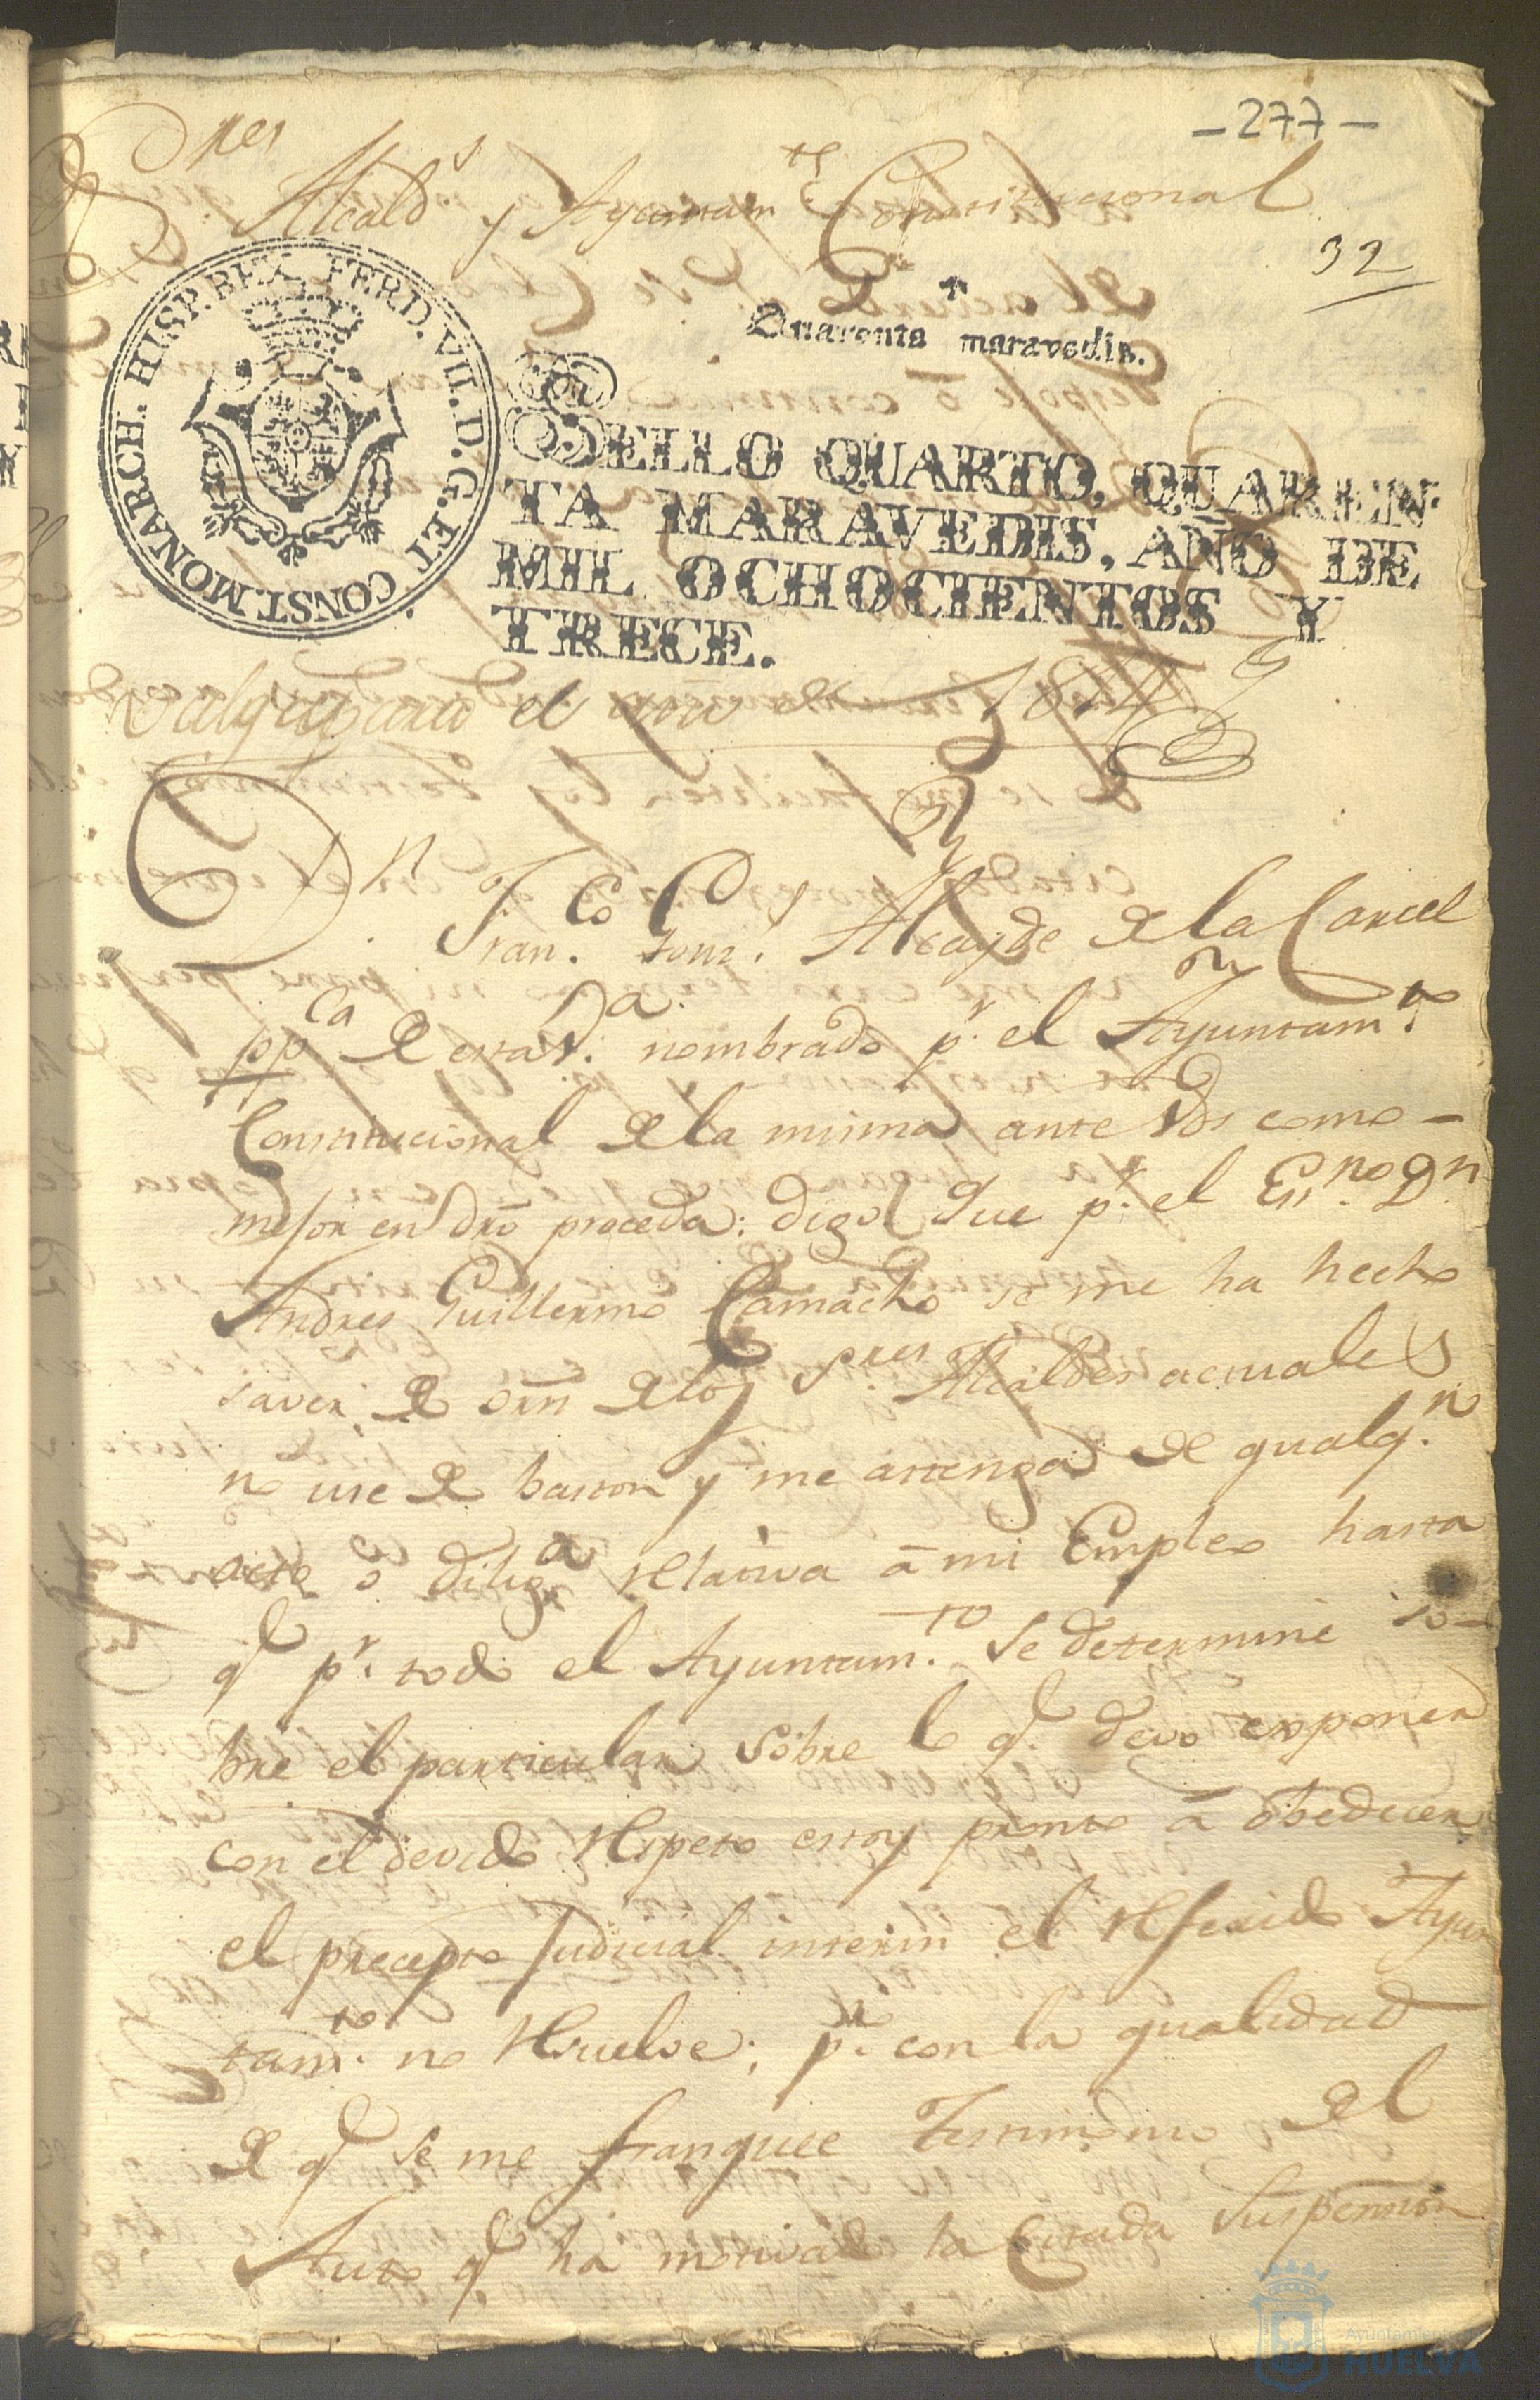 -277-
Sres Alcalds y Ayuntamto Constitucional
32
HISP. REX. FERD. VII. D. G. ET CONST. MONARCH.
Quarenta maravedis.
SELLO QUARTO, QUAREN-
TA MARAVEDIS, AÑO DE
MIL OCHOCIENTOS Y
TRECE.
Valga para el año de 1814
Dn Franco Gonz Alcayde de la Carcel
ppca de esta Va. nombrado pr. el Ayuntamto
Constitucional de la misma ante Vds como
mejor en dro proceda: digo Que pr. el Essno Dn
Andres Guillermo Camacho se me ha hecho
saver de orn de los Sres. Alcaldes actuales
no use de baston y me astenga de qualqn
acto o diliga relativa á mi Empleo hasta
q pr. todo el Ayuntamto se determine so-
bre el particular: Sobre lo q devo exponer
con el devido respeto estoy pronto á obedecer
el precepto Judicial interin el referido Ayun
tamto. no resuelve; po. con la qualidad
de q se me franquee Testimonio del
Auto q ha motivado la Citada Suspension
Ayuntamiento
HUELVA